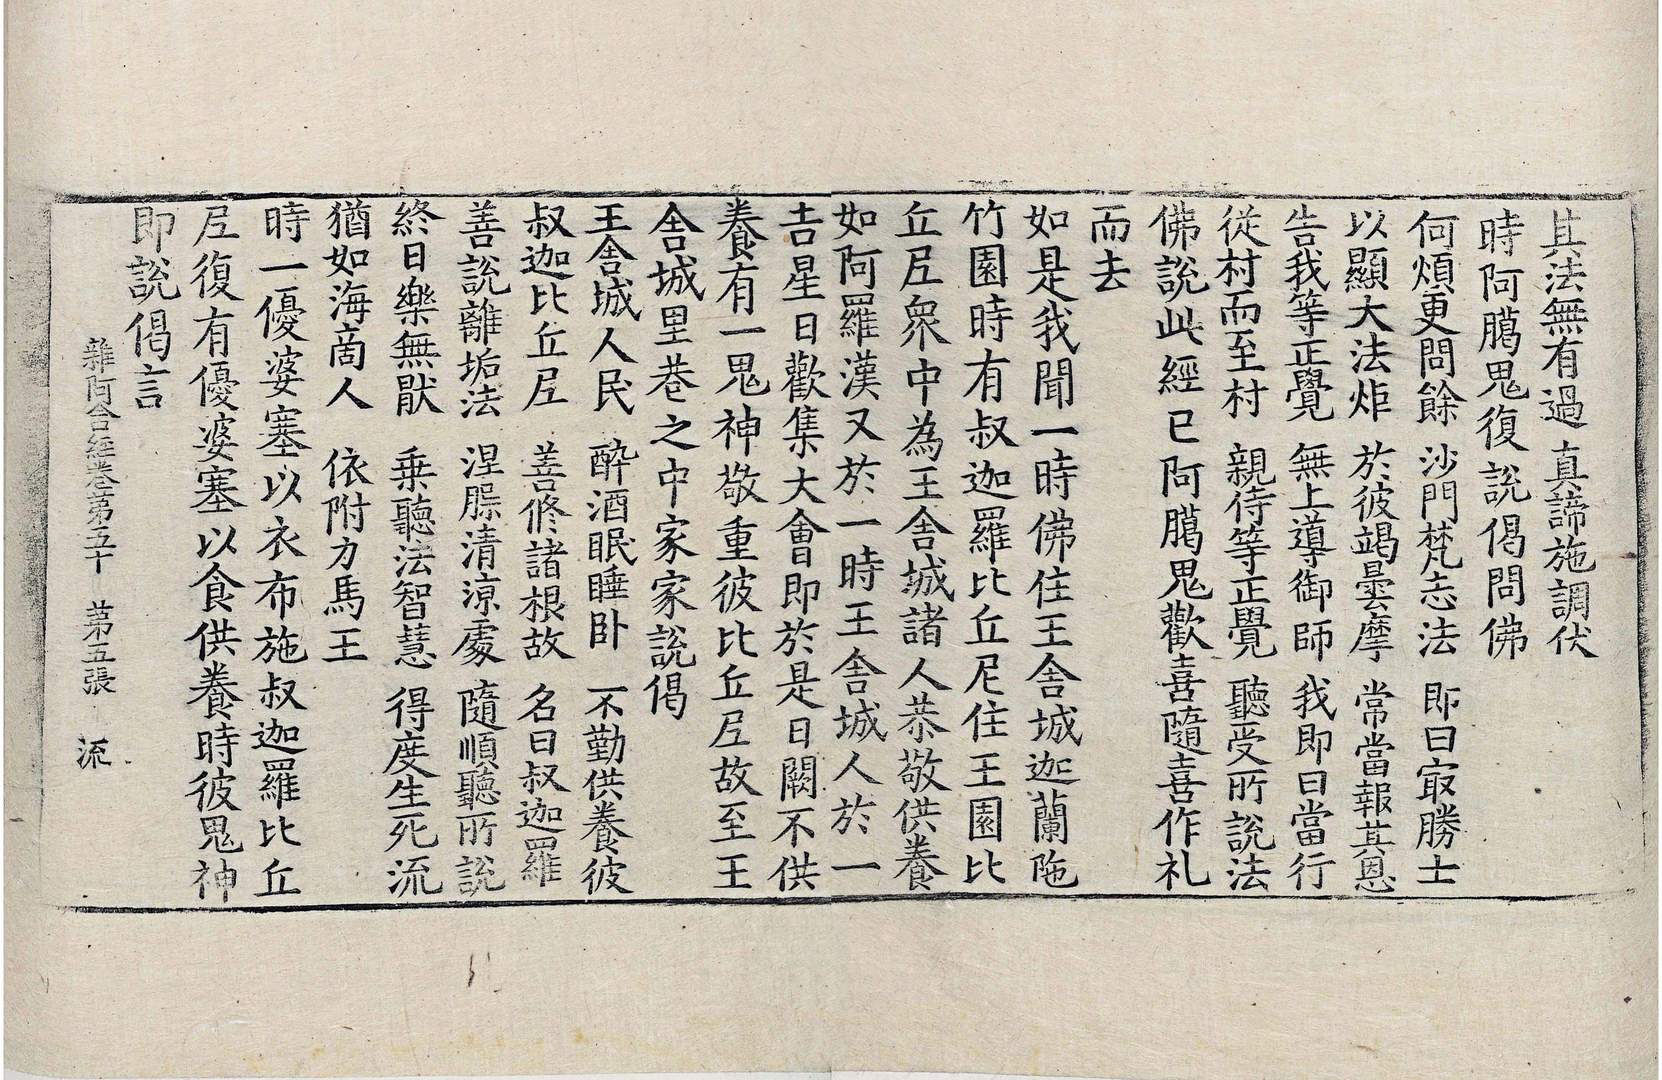 其法無有過　真諦施調伏
時阿臈鬼復說偈問佛
何煩更問餘　沙門梵志法　即曰㝡勝士
以顯大法炬　於彼竭曇摩　常當報其恩
告我等正覺　無上導御師　我即日當行
從村而至村　親侍等正覺　聽受所說法
佛說此經已阿臈鬼歡喜隨喜作礼
而去
如是我聞一時佛住王舍城迦蘭陁
竹園時有叔迦羅比丘尼住王園比
丘𡰱衆中為王舍城諸人恭敬供養
如阿羅漢又於一時王舍城人於一
吉星日歡集大會即於是日闕不供
養有一鬼神敬重彼比丘𡰱故至王
舍城里巷之中家家說偈
王舍城人民　醉酒眠睡卧　不勤供養彼
叔迦比丘𡰱　善修諸根故　名曰叔迦羅
善說離垢法　涅槃清涼處　隨順聽所說
終日樂無猒　乗聽法智慧　得度生死流
猶如海商人　依附力馬王
時一優婆塞以衣布施叔迦羅比丘
𡰱復有優婆塞以食供養時彼鬼神
即說偈言
雜阿含經卷第五十　第五張　流